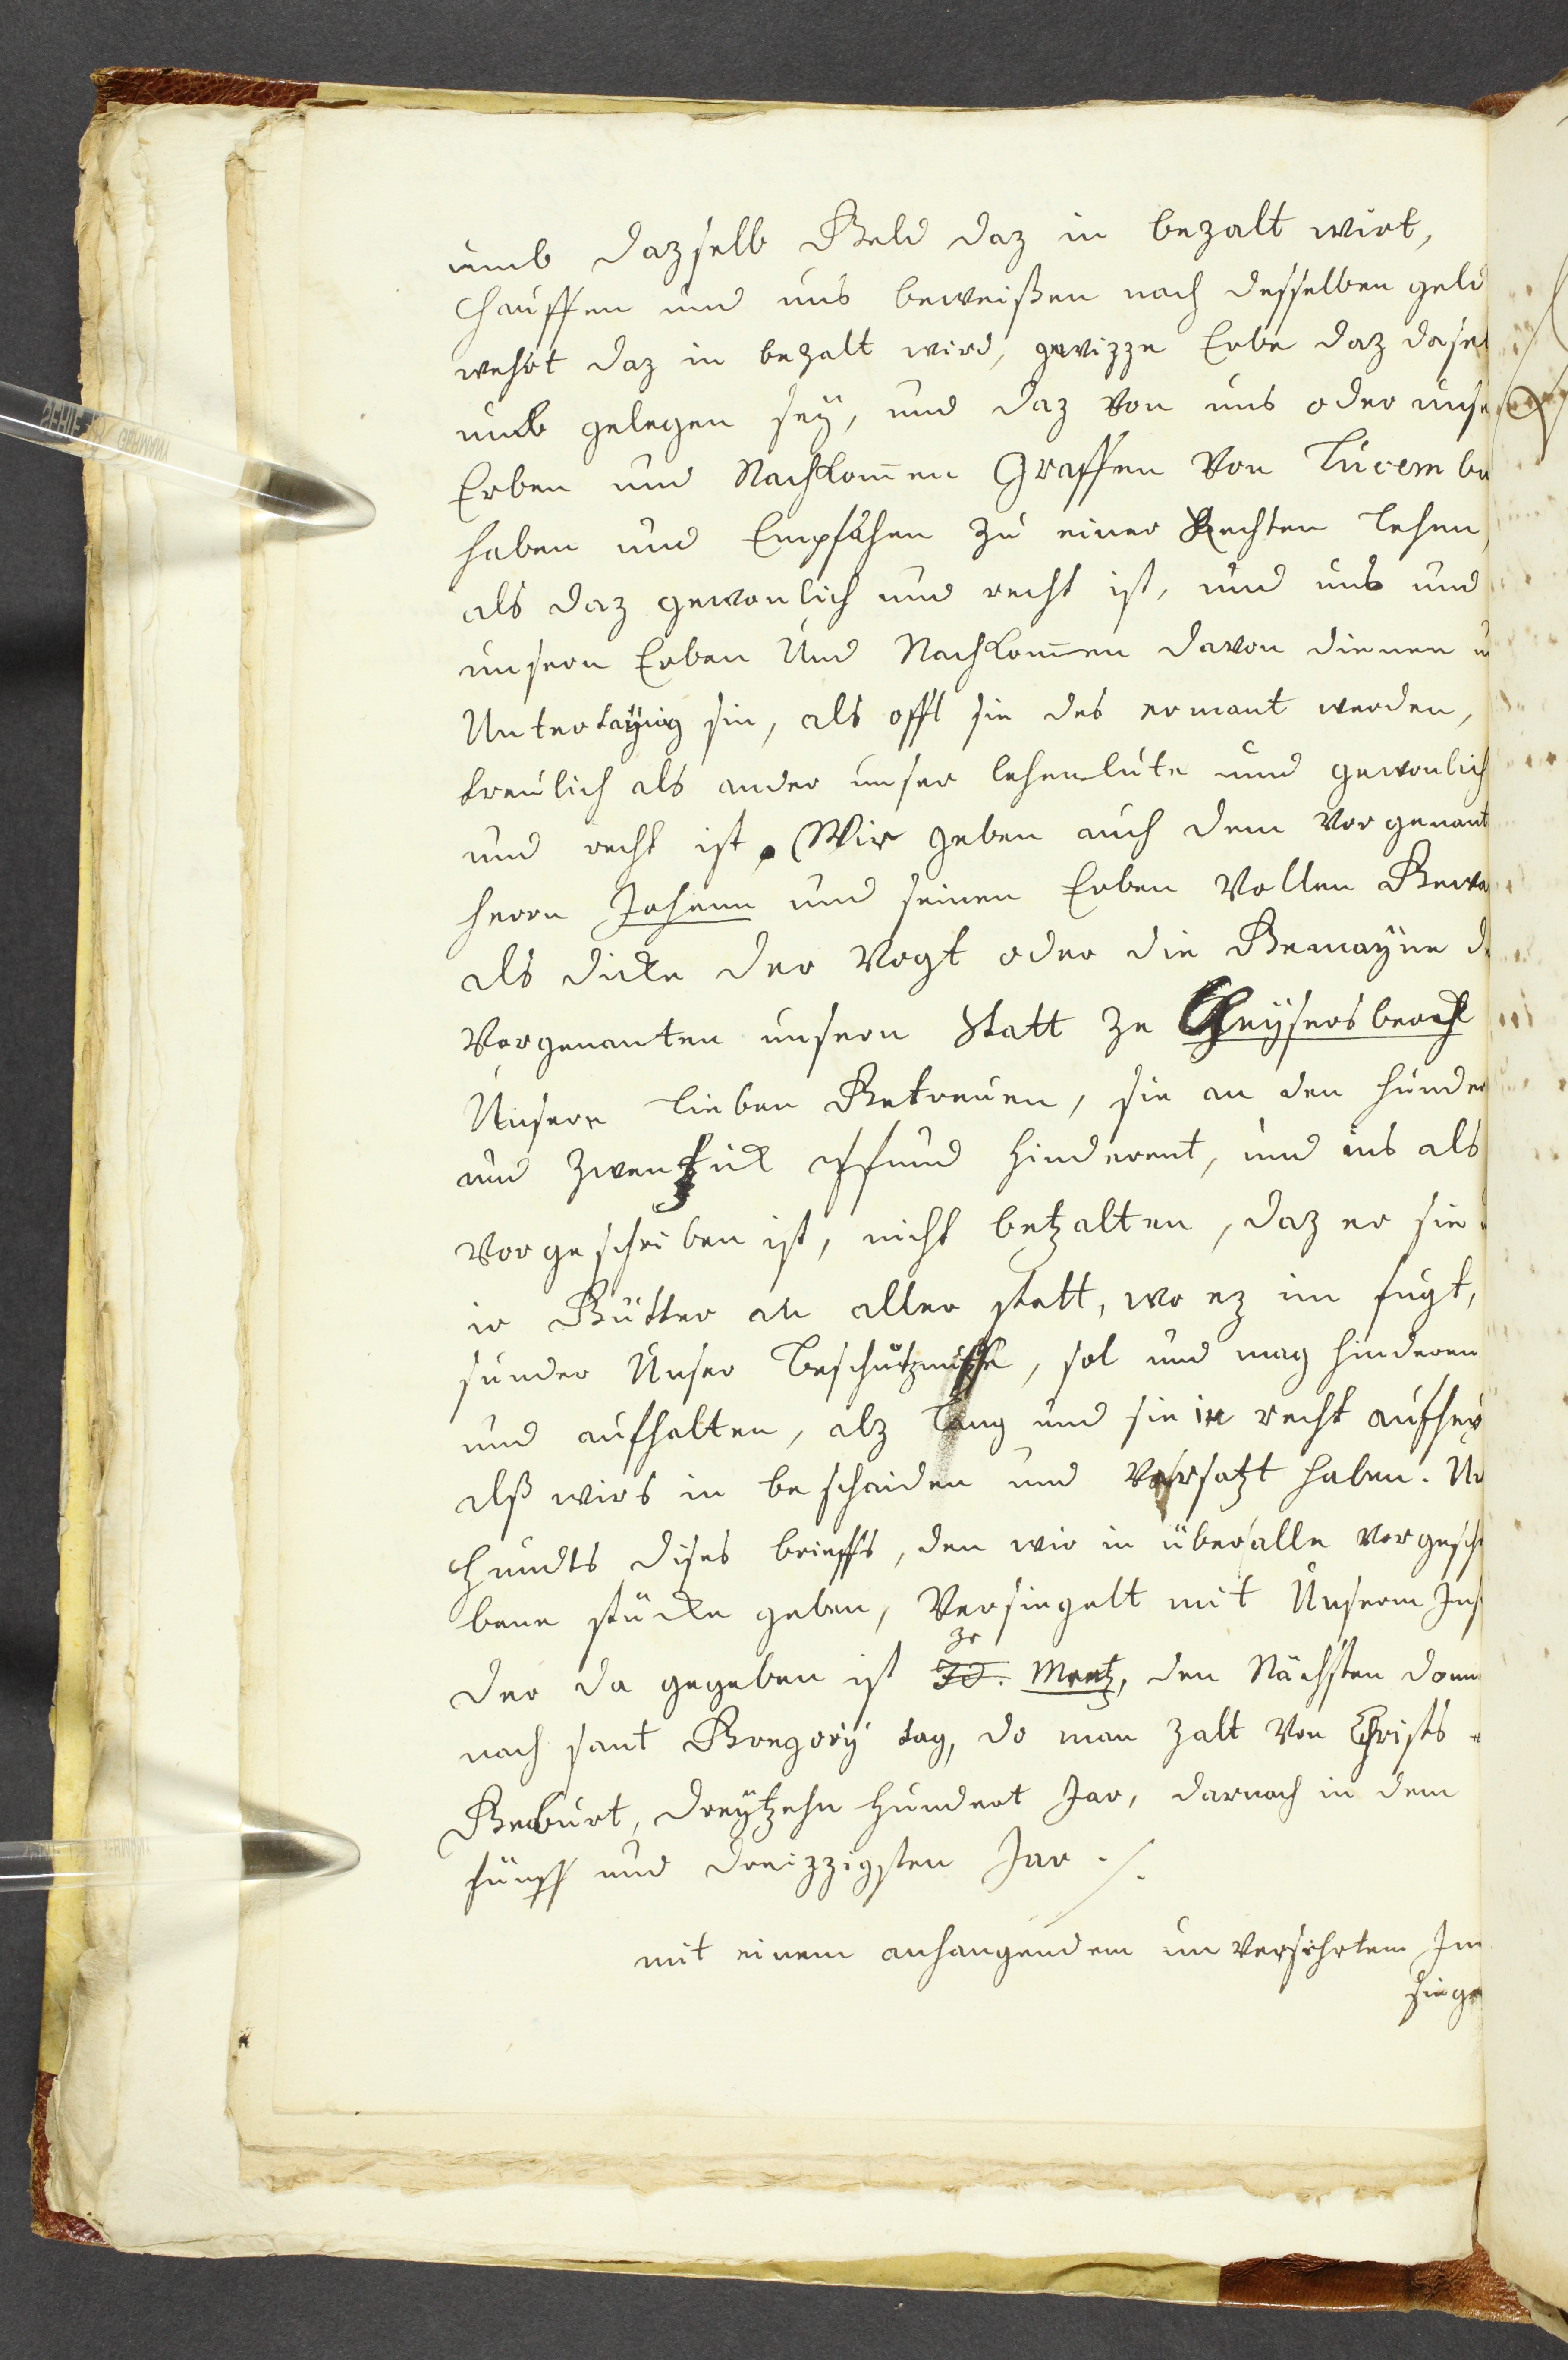 umb dazselb Geld daz in bezalt wirt,
Chauffen und uns beweißen nach desselben geld
wehrt daz in bezalt wird, gewizze Erbe daz dasel
umb gelegen sey, und daz von uns oder unse
Erben und Nachkom̄en Graffen von Lucembu
haben und Empfahen zu einer Rechten lehen,
als daz gewonlich und recht ist, und uns und
unsern Erben Und Nachkom̄en davon dienen u
Untertaÿnig sin, als offt sie des ermant werden,
treulich als ander unser lehenlüte und gewonlich
und recht ist. Wir geben auch dem vorgenant
herrn Johann und seinen Erben Vollen Gewa
als dicke der Vogt oder die Gemayne d
Vorgenanten unsern Statt ze Cheysersberch
Unsere lieben Getreuen, sie an den hunder
und zwenzick pfund hinderent, und ins als
vorgeschriben ist, nicht betzalten, daz er sie
ir Gütter an aller statt, wo ez im fugt,
sunder Unser beschützniße, sol und mag hinderen
und aufhalten, alz lang und sie in recht aufher
alß wirs in bescheiden und Versatzt haben. Ur
Chundts dises brieffs, den wir in über alle vorgesch
bene stücke geben, Versiegelt mit Unserm Ins
der da gegeben ist ze Mentz, den Nächsten donn
nach sant Gregorÿ tag, do man zalt von Christs
Geburt, dreytzehn hundert Jar, darnach in dem
fünff und dreizzigsten Jar ./.
mit einem anhangendem unversehrtem In
siege